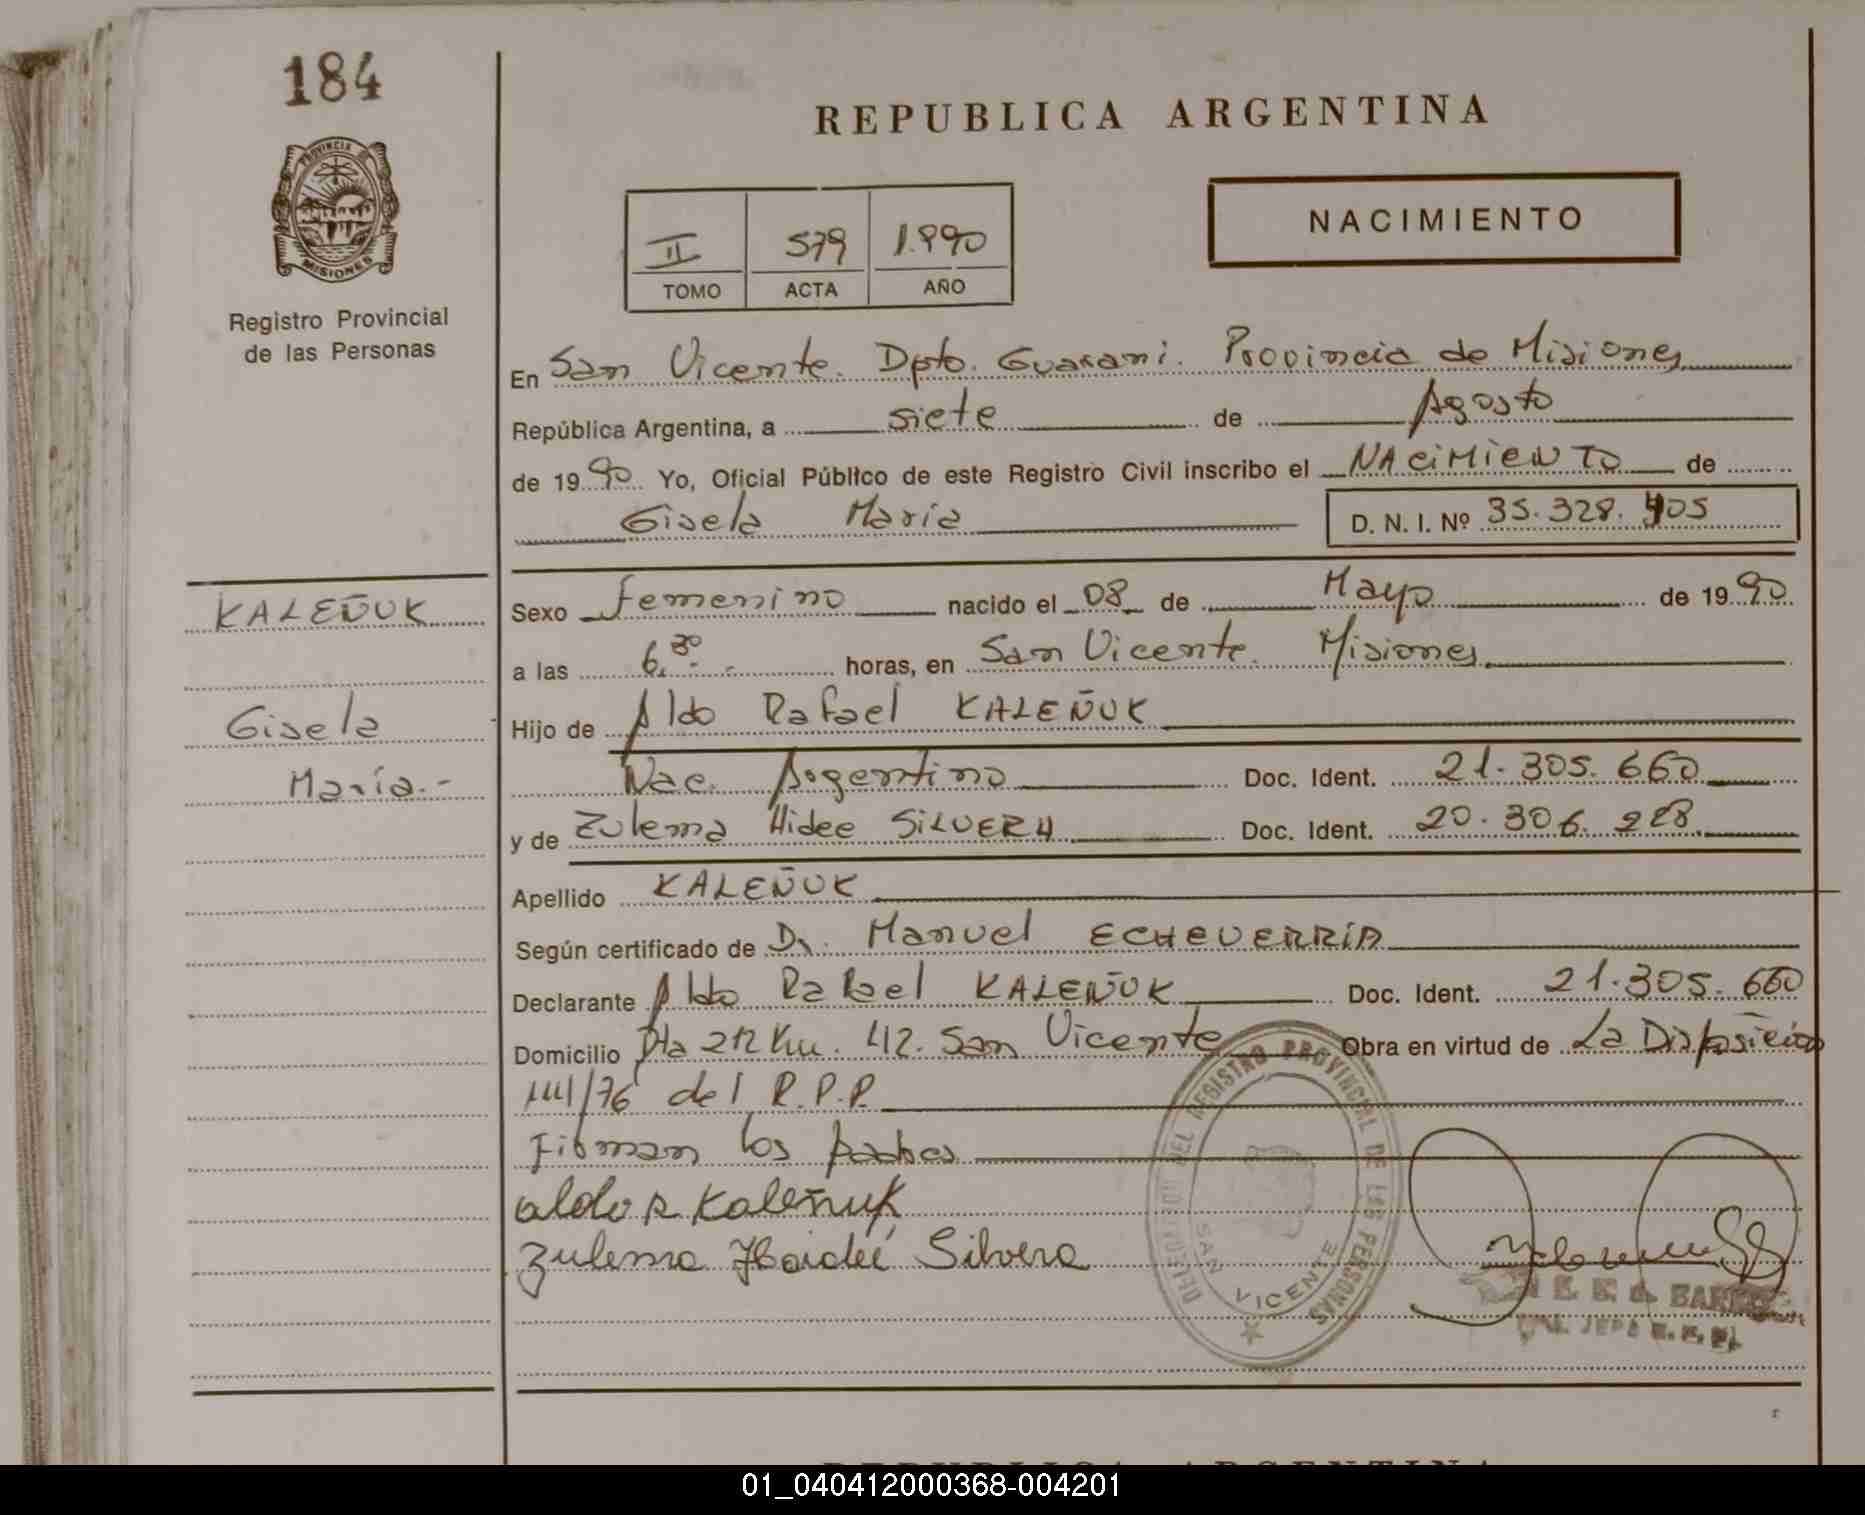 184
REPUBLICA ARGENTINA
PROVINCIA DE
MISIONES
Registro Provincial
de las Personas
II 579 1.990
TOMO ACTA AÑO
NACIMIENTO
En San Vicente. Dpto. Guarani. Provincia de Misiones
República Argentina, a siete de Agosto
de 1990 Yo, Oficial Público de este Registro Civil inscribo el NACIMIENTO de
Gisela Maria D. N. I. Nº 35.328.405
KALEÑUK
Gisela
María.-
Sexo Femenino nacido el 08 de Mayo de 1990
a las 6.30.- horas, en San Vicente. Misiones
Hijo de Aldo Rafael KALEÑUK
Nac. Argentino Doc. Ident. 21.305.660
y de Zulema Hidee SILVERA Doc. Ident. 20.306.228
Apellido KALEÑUK
Según certificado de Dr. Manuel ECHEVERRIA
Declarante Aldo Rafael KALEÑUK Doc. Ident. 21.305.660
Domicilio Rta 212 Km. 412. San Vicente Obra en virtud de La Disposición
/76 del R.P.P.
Firman los padres
aldo R Kaleñuk
Zulema Haideé Silvera
DELEGACION DEL REGISTRO PROVINCIAL DE LAS PERSONAS
SAN VICENTE
REPUBLICA ARGENTINA
01_040412000368-004201